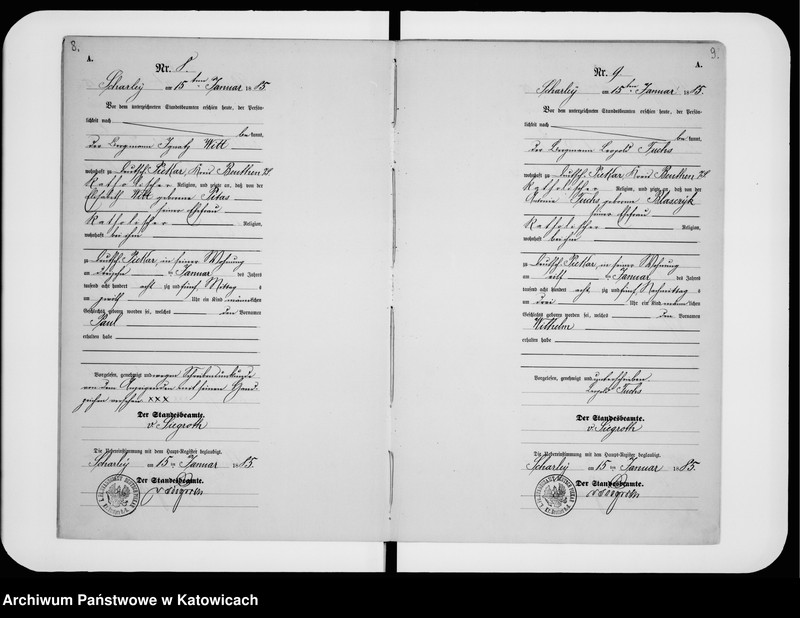 8.
A.
Nr. 8.
Scharley am 15ten Januar 1885
Vor dem unterzeichneten Standesbeamten erschien heute, der Persön-
lichkeit nach
bekannt,
der Bergmann Ignatz Witt
wohnhaft zu Deutsch Piekar, Kreis Beuthen
Katholischer Religion, und zeigte an, daß von der
Elisabeth Witt geborene
seiner Ehefrau
Katholischer Religion,
wohnhaft bei ihm
zu Deutsch Piekar, in seiner Wohnung
am Januar des Jahres
tausend acht hundert acht zig und fünf Mittag s
um zwölf Uhr ein Kind männlichen
Geschlechts geboren worden sei, welches den Vornamen
Paul
erhalten habe
Vorgelesen, genehmigt und wegen Schreibensunkunde
von dem Anzeigenden mit seinem Hand-
zeichen versehen xxx
Der Standesbeamte.
v. Siegroth
Die Uebereinstimmung mit dem Haupt-Register beglaubigt.
Scharley am 15 ten Januar 1885.
Der Standesbeamte.
v. Siegroth
9.
A.
Nr. 9
Scharley am 15ten Januar 1885.
Vor dem unterzeichneten Standesbeamten erschien heute, der Persön-
lichkeit nach
bekannt,
der Bergmann Leopold Fuchs
wohnhaft zu Deutsch Piekar, Kreis Beuthen
Katholischer Religion, und zeigte an, daß von der
Antonie Fuchs, geborene Blasczyk
seiner Ehefrau
Katholischer Religion,
wohnhaft bei ihm
zu Deutsch Piekar, in seiner Wohnung
am elf ten Januar des Jahres
tausend acht hundert acht zig und fünf Nachmittag s
um drei Uhr ein Kind männlichen
Geschlechts geboren worden sei, welches den Vornamen
Wilhelm
erhalten habe
Vorgelesen, genehmigt und unterschrieben.
Leopold Fuchs
Der Standesbeamte.
v. Siegroth
Die Uebereinstimmung mit dem Haupt-Register beglaubigt.
Scharley am 15 ten Januar 1885.
Der Standesbeamte.
v. Siegroth
Archiwum Państwowe w Katowicach